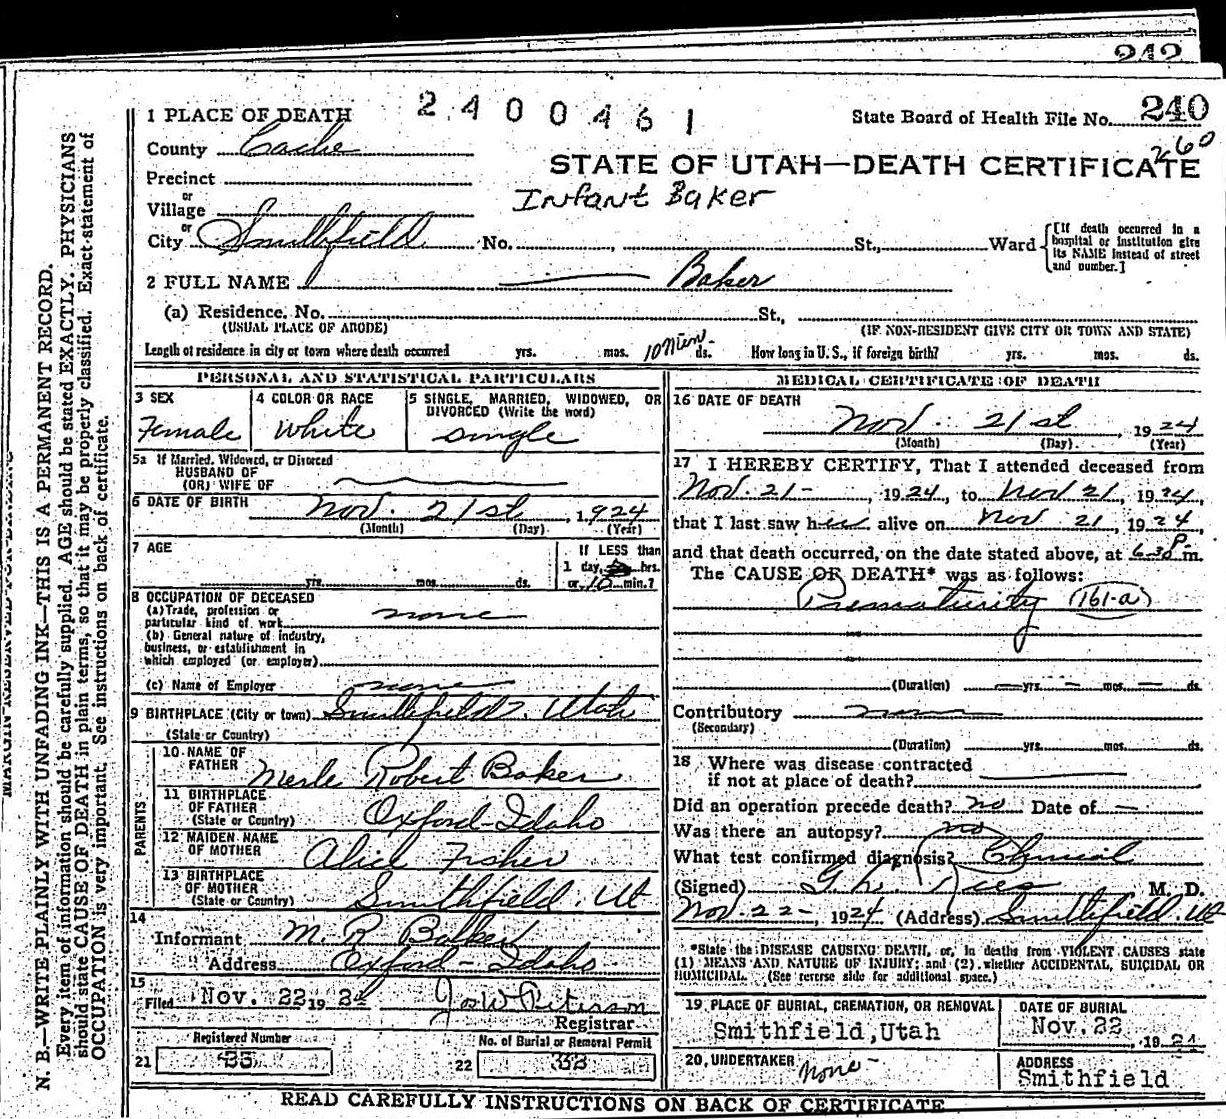 242
2400461
State Board of Health File No. 240
260
1 PLACE OF DEATH
County Cache
STATE OF UTAH—DEATH CERTIFICATE
Precinct
Infant Baker
or
Village
or
City Smithfield No. St., Ward
[If death occurred in a hospital or institution give its NAME instead of street and number.]
2 FULL NAME Baker
(a) Residence. No. St.,
(USUAL PLACE OF ABODE) (IF NON-RESIDENT GIVE CITY OR TOWN AND STATE)
Length of residence in city or town where death occurred yrs. mos. 10 min ds. How long in U. S., if foreign birth? yrs. mos. ds.
PERSONAL AND STATISTICAL PARTICULARS
3 SEX
Female
4 COLOR OR RACE
White
5 SINGLE, MARRIED, WIDOWED, OR
DIVORCED (Write the word)
single
5a If Married, Widowed, or Divorced
HUSBAND OF
(OR) WIFE OF
6 DATE OF BIRTH Nov. 21st, 1924
(Month) (Day) (Year)
7 AGE
yrs. mos. ds.
If LESS than
1 day, hrs.
or 10 min.?
8 OCCUPATION OF DECEASED
(a) Trade, profession or
particular kind of work none
(b) General nature of industry,
business, or establishment in
which employed (or employer)
(c) Name of Employer none
9 BIRTHPLACE (City or town) Smithfield, Utah
(State or Country)
PARENTS
10 NAME OF
FATHER Merle Robert Baker
11 BIRTHPLACE
OF FATHER
(State or Country) Oxford-Idaho
12 MAIDEN NAME
OF MOTHER Alice Fisher
13 BIRTHPLACE
OF MOTHER
(State or Country) Smithfield. Ut
14
Informant M. R. Baker
Address Oxford-Idaho
15
Filed Nov. 22 1924
Registrar
Registered Number
21 35
No. of Burial or Removal Permit
22 33
MEDICAL CERTIFICATE OF DEATH
16 DATE OF DEATH
Nov. 21st, 1924
(Month) (Day) (Year)
17 I HEREBY CERTIFY, That I attended deceased from
Nov. 21-, 1924, to Nov 21, 1924,
that I last saw her alive on Nov 21, 1924,
and that death occurred, on the date stated above, at 6-30 P.m.
The CAUSE OF DEATH* was as follows:
Prematurity (161-a)
(Duration) — yrs. — mos. — ds.
Contributory none
(Secondary)
(Duration) yrs. mos. ds.
18 Where was disease contracted
if not at place of death?
Did an operation precede death? no Date of —
Was there an autopsy? no
What test confirmed diagnosis? Clinical
(Signed) G. L. Rees M. D.
Nov. 22-, 1924 (Address) Smithfield. Ut
*State the DISEASE CAUSING DEATH, or, in deaths from VIOLENT CAUSES state
(1) MEANS AND NATURE OF INJURY; and (2) whether ACCIDENTAL, SUICIDAL OR
HOMICIDAL. (See reverse side for additional space.)
19 PLACE OF BURIAL, CREMATION, OR REMOVAL
Smithfield, Utah
DATE OF BURIAL
Nov. 22
, 19 24
20, UNDERTAKER none-
ADDRESS
Smithfield
READ CAREFULLY INSTRUCTIONS ON BACK OF CERTIFICATE
MARGIN RESERVED FOR BINDING
N. B.—WRITE PLAINLY WITH UNFADING INK—THIS IS A PERMANENT RECORD.
Every item of information should be carefully supplied. AGE should be stated EXACTLY. PHYSICIANS
should state CAUSE OF DEATH in plain terms, so that it may be properly classified. Exact statement of
OCCUPATION is very important. See instructions on back of certificate.